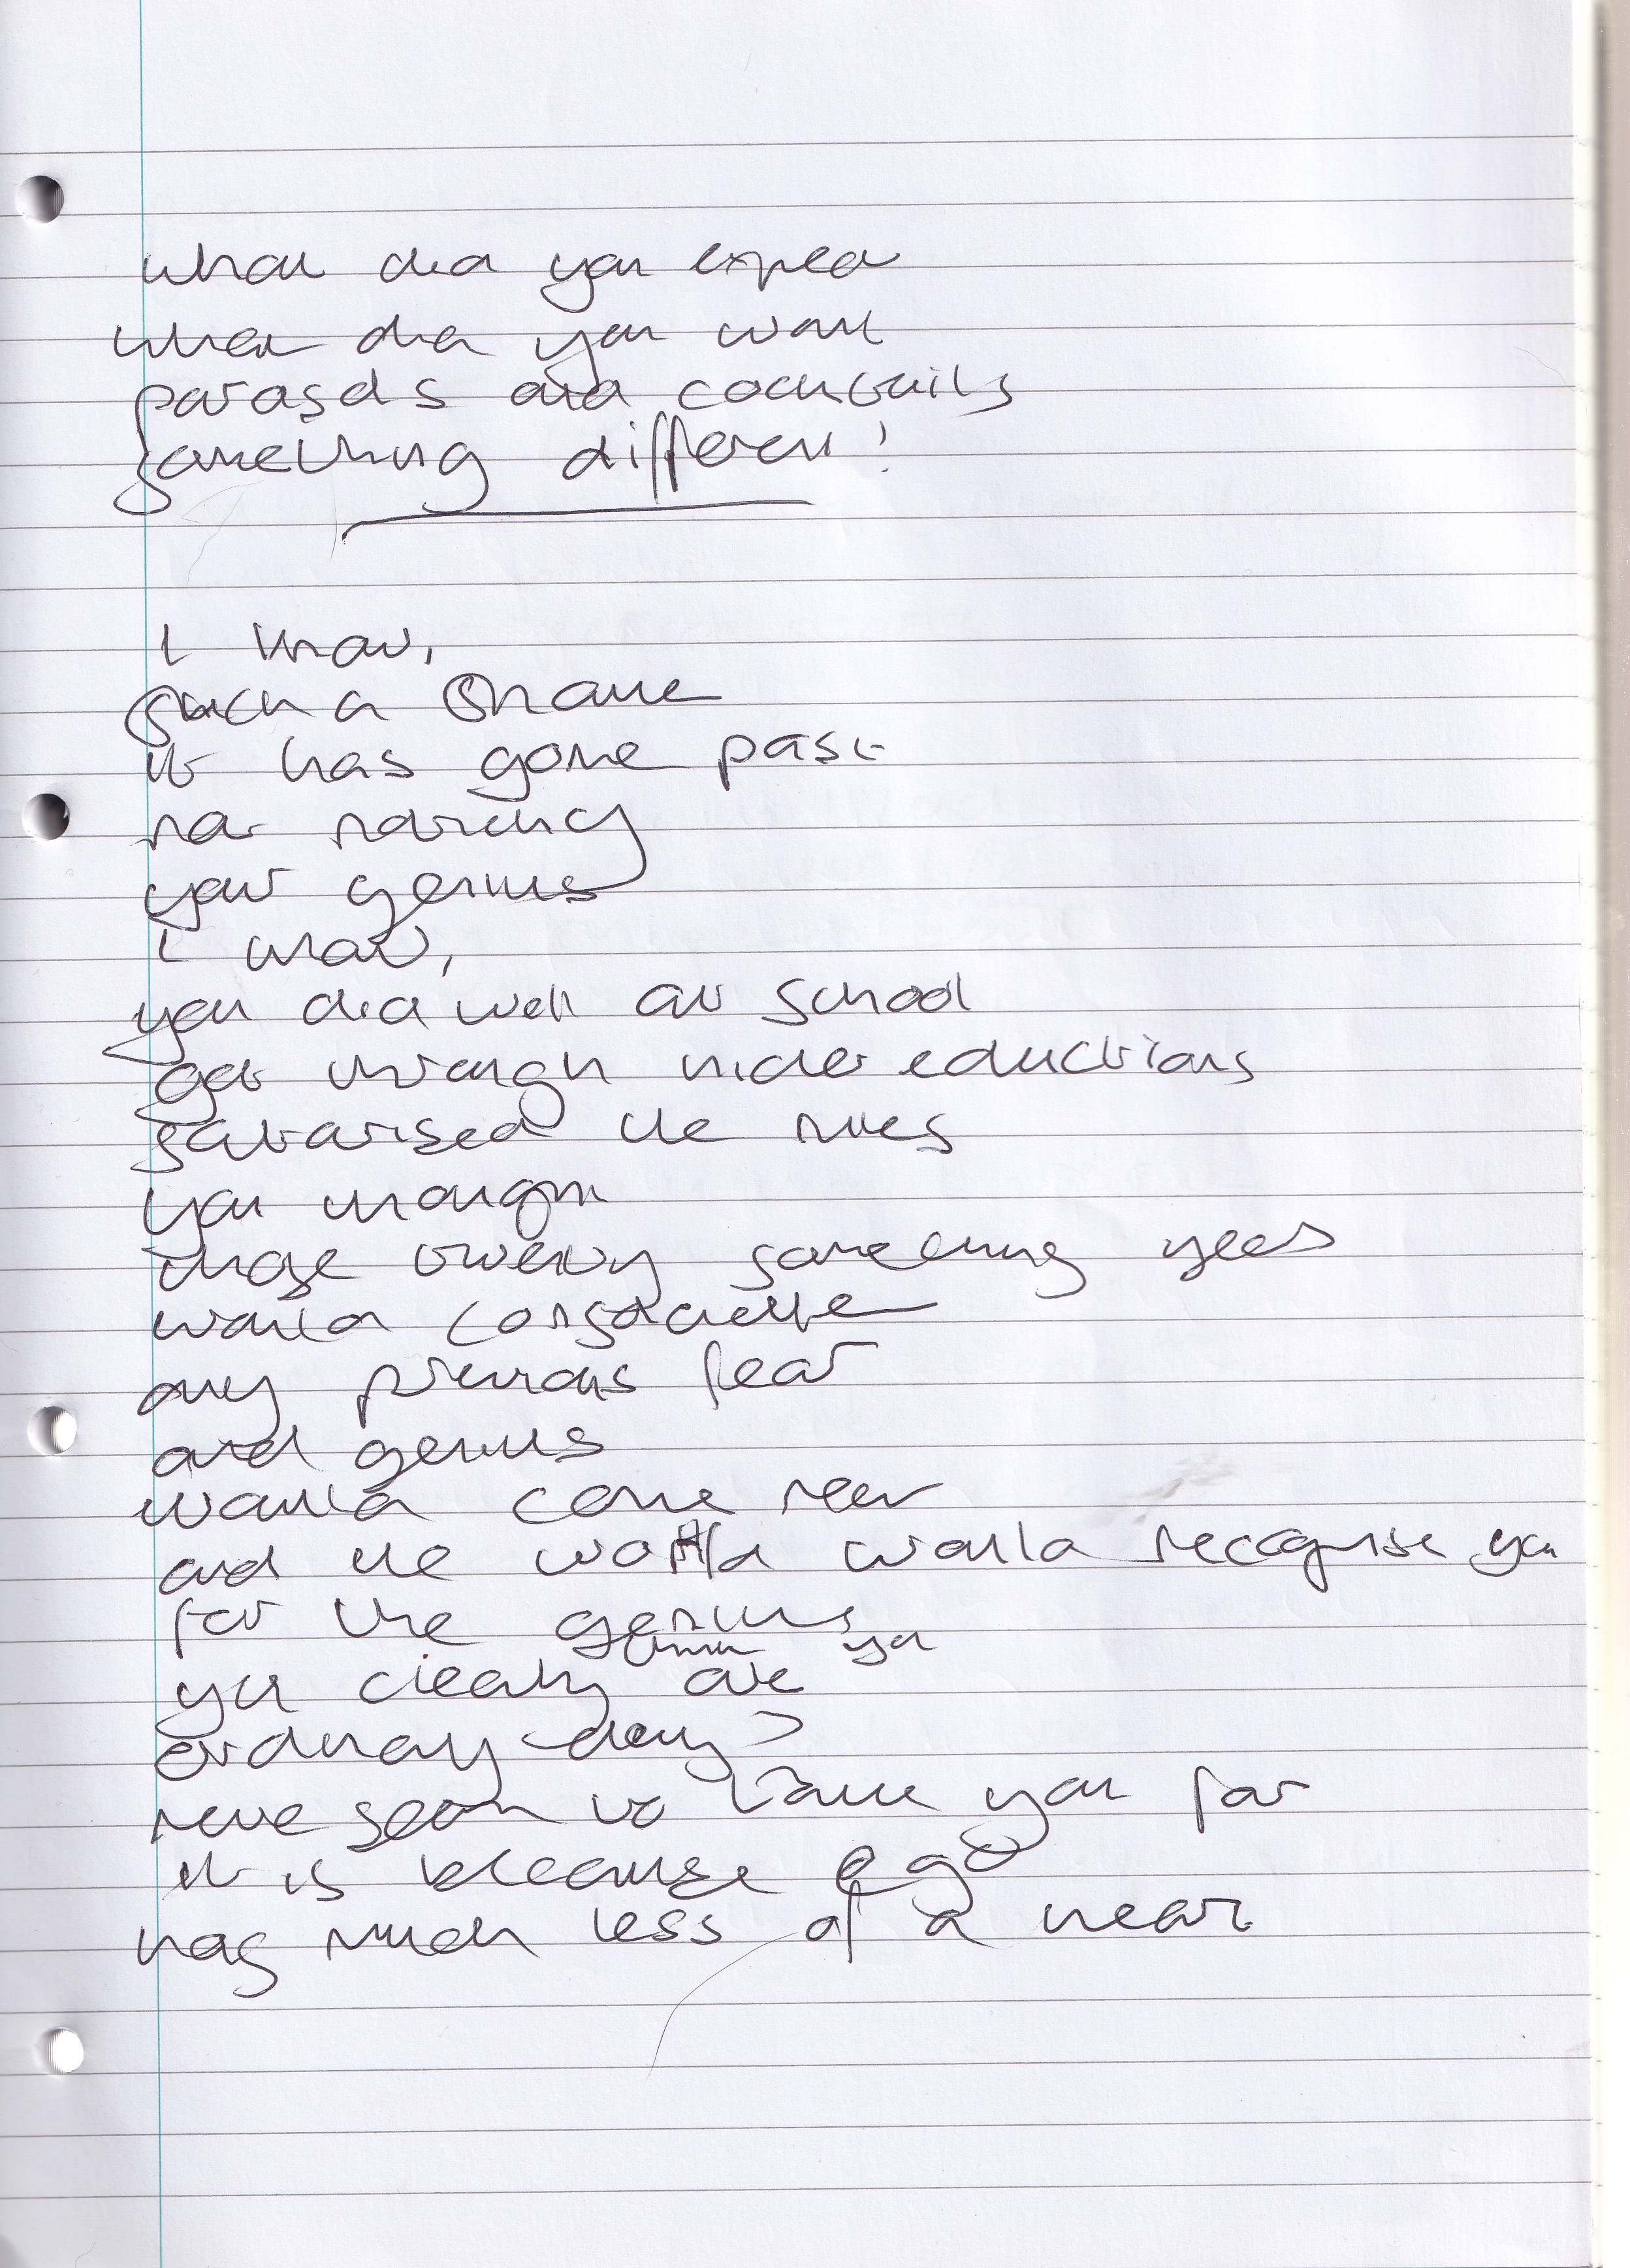 what did you expect
what did you want
parasols and cocktails
something different?
I know,
such a shame
it has gone past
not noticing
your genius
I know,
you did well at school
got through educations
satarised the rules
you thought
those twenty something years
would consolidate
any previous fear
and genius
would come near
and the world would recognise you
for the genius
think you
you clearly are
ordinary days
never seem to take you far
it is because ego
has much less of a near